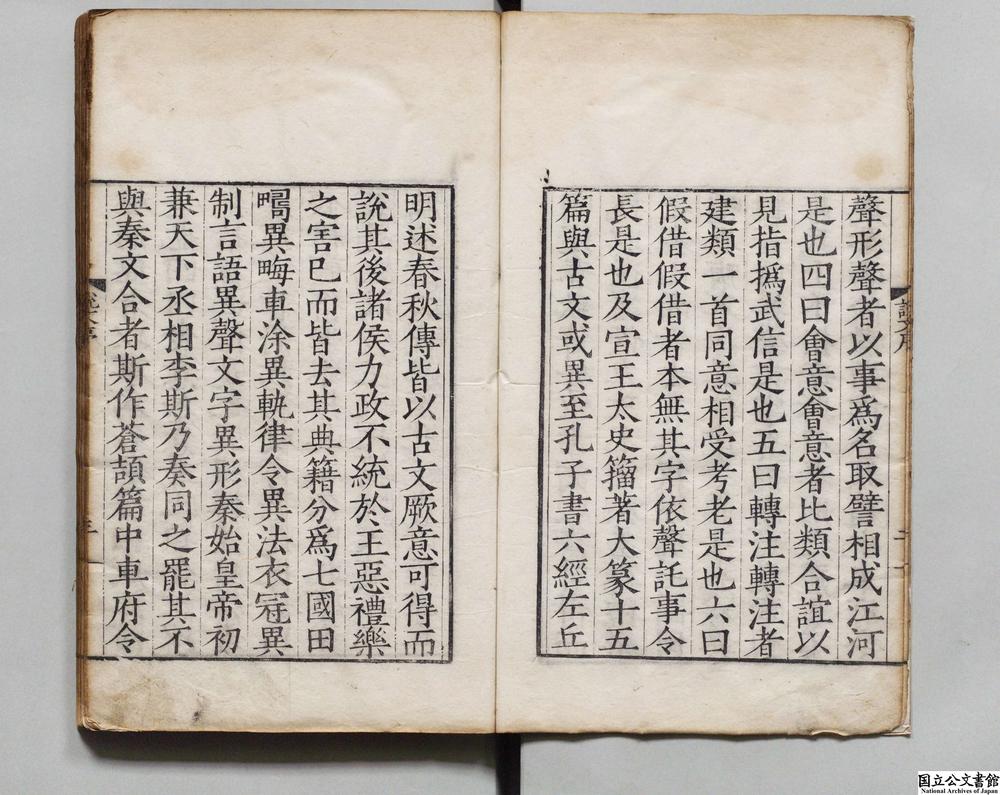 聲形聲者以事爲名取譬相成江河
是也四曰會意會意者比類合誼以
見指撝武信是也五曰轉注轉注者
建類一首同意相受考老是也六曰
假借假借者本無其字依聲託事令
長是也及宣王太史籀著大篆十五
篇與古文或異至孔子書六經左丘
明述春秋傳皆以古文厥意可得而
說其後諸侯力政不統於王惡禮樂
之害已而皆去其典籍分爲七國田
疇異畮車涂異軌律令異法衣冠異
制言語異聲文字異形秦始皇帝初
兼天下丞相李斯乃奏同之罷其不
與秦文合者斯作蒼頡篇中車府令
国立公文書館
National Archives of Japan